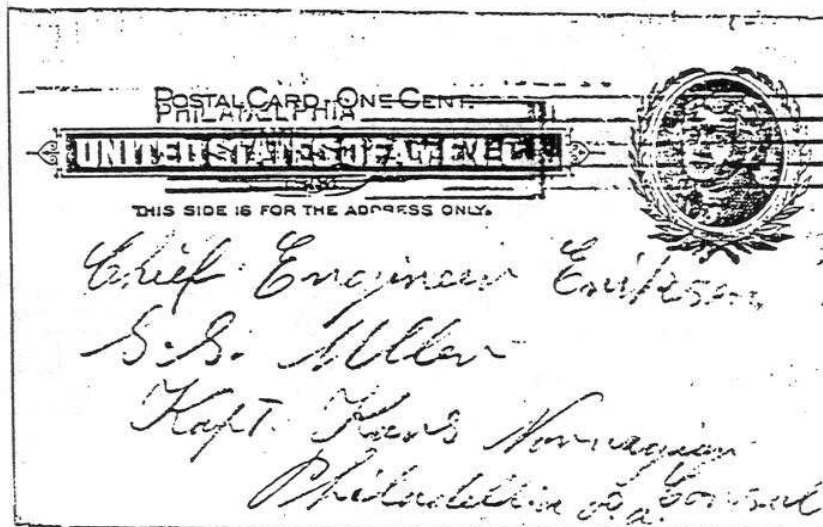 POSTAL CARD-ONE CENT.
PHILADELPHIA
UNITED STATES OF AMERICA
THIS SIDE IS FOR THE ADDRESS ONLY.
Chief Engineer Erikson,
S.S. Uller
Kapt. Norwegian
Philadelphia Pa. Consul